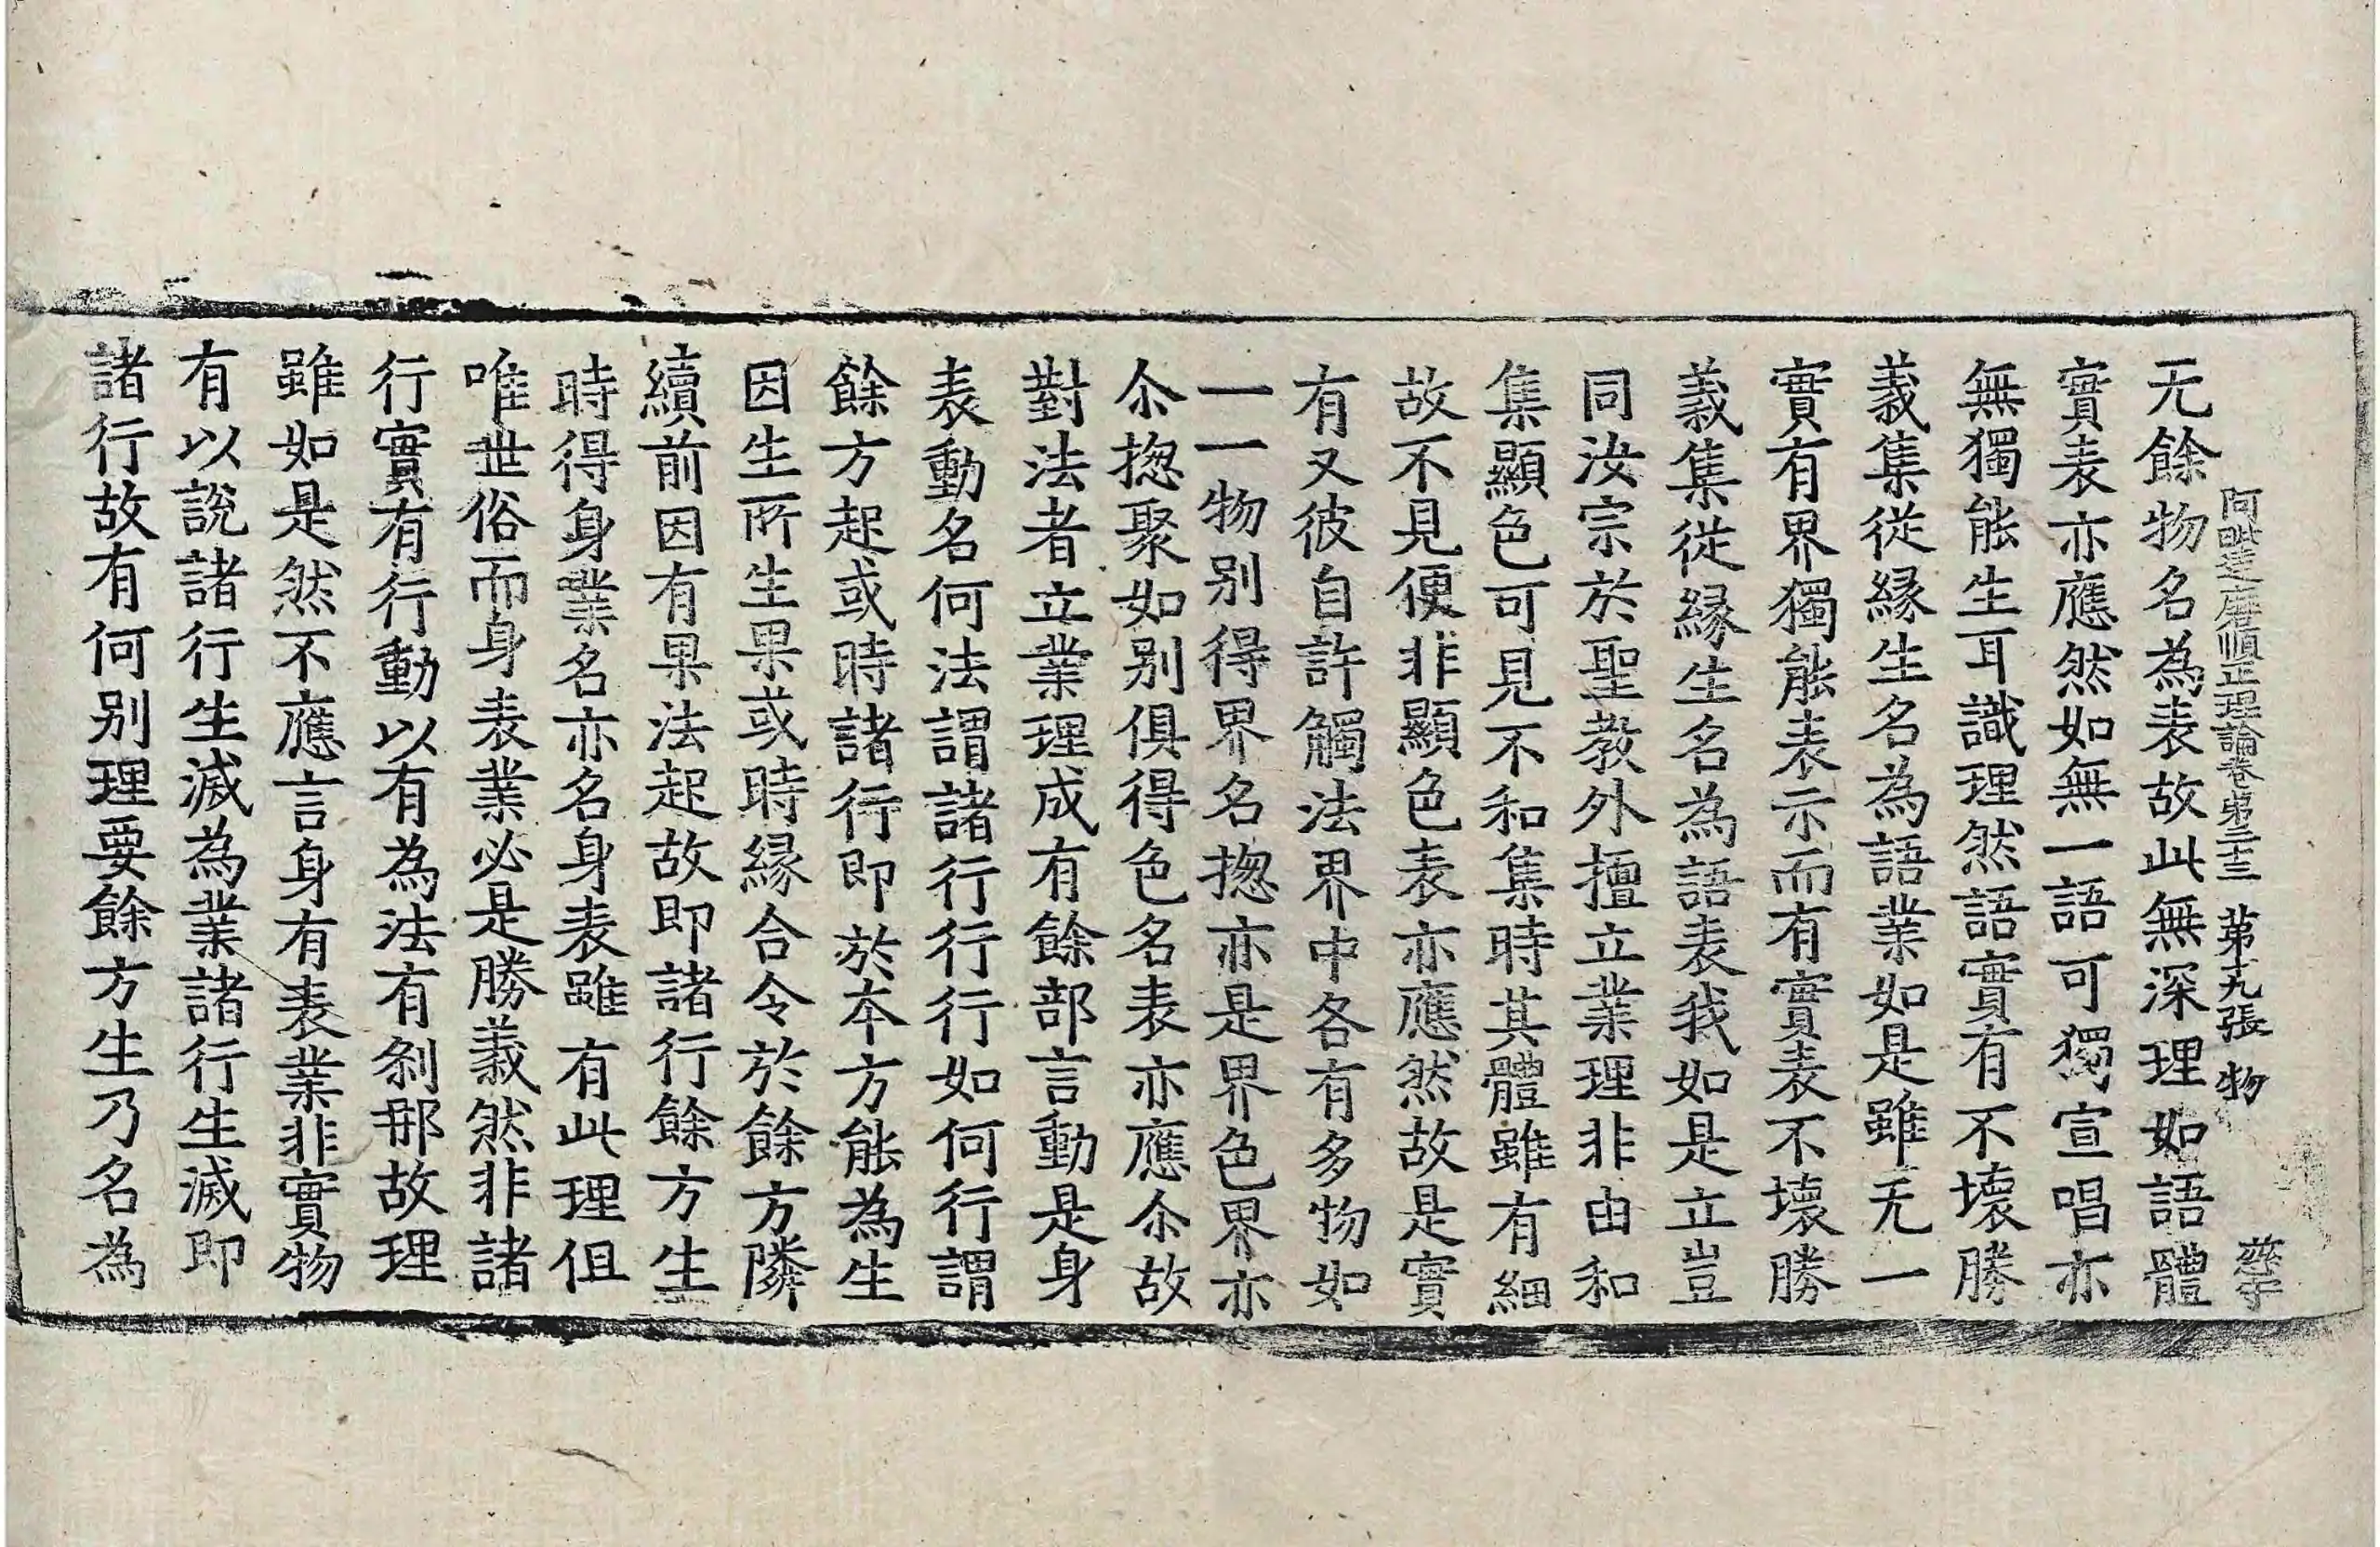 阿毗達磨順正理論卷第三十三 第九張 物
无餘物名為表故此無深理如語體
實表亦應然如無一語可獨宣唱亦
無獨能生耳識理然語實有不壞勝
義集從緣生名為語業如是雖无一
實有界獨能表示而有實表不壞勝
義集從緣生名為語表我如是立豈
同汝宗於聖教外擅立業理非由和
集顯色可見不和集時其體雖有細
故不見便非顯色表亦應然故是實
有又彼自許觸法界中各有多物如
一一物別得界名揔亦是界色界亦
尒揔聚如別俱得色名表亦應尒故
對法者立業理成有餘部言動是身
表動名何法謂諸行行行如何行謂
餘方起或時諸行即於本方能為生
因生所生果或時緣合令於餘方隣
續前因有果法起故即諸行餘方生
時得身業名亦名身表雖有此理但
唯世俗而身表業必是勝義然非諸
行實有行動以有為法有剎那故理
雖如是然不應言身有表業非實物
有以說諸行生滅為業諸行生滅即
諸行故有何別理要餘方生乃名為